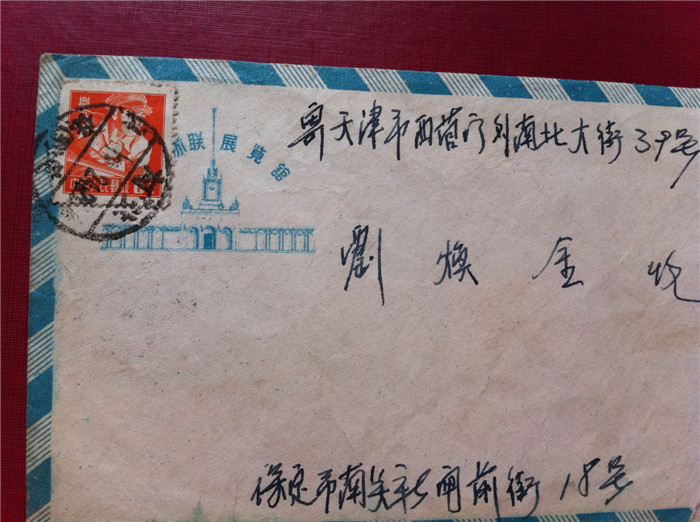 苏联展览館
寄天津市西营门外南北大街39号
劉焕金收
保定市南关新闸前街18号